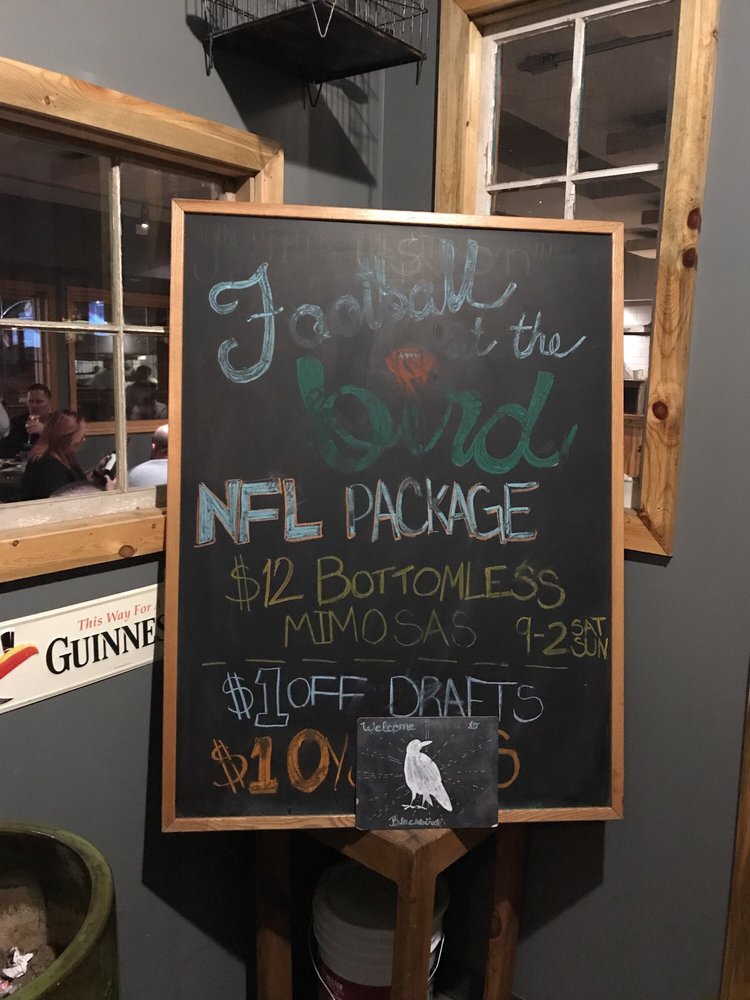 Football
at the
bird
NFL PACKAGE
$12 BOTTOMLESS
MIMOSAS 9-2 SAT
SUN
$1 OFF DRAFTS
$10
Welcome to
Blackbird
This Way For
GUINNES